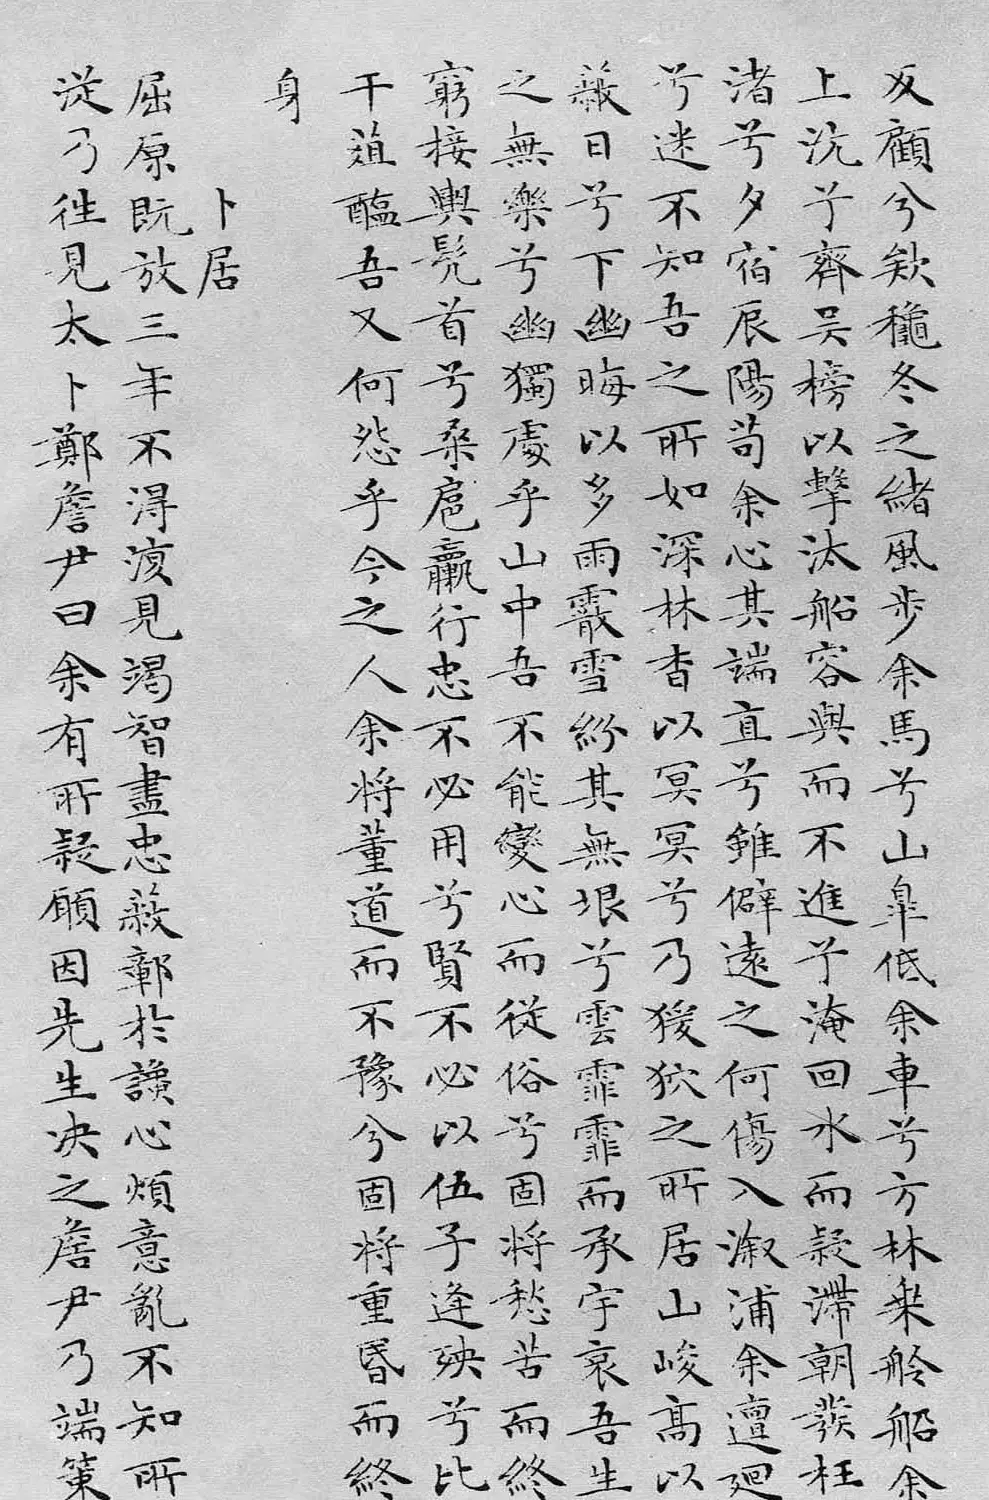 反顧兮欸穐冬之緒風步余馬兮山皐低余車兮方林椉舲船余
上沅兮齊吴榜以擊汰船容與而不進兮淹回水而疑滯朝發枉
渚兮夕宿辰陽苟余心其端直兮雖僻遠之何傷入溆浦余邅廻
兮迷不知吾之所如深林杳以冥冥兮乃猨狖之所居山峻髙以
蔽日兮下幽晦以多雨霰雪紛其無垠兮雲霏霏而承宇哀吾生
之無樂兮幽獨處乎山中吾不能變心而從俗兮固將愁苦而終
窮接輿髠首兮桑扈臝行忠不必用兮賢不必以伍子逢殃兮比
干葅醢吾又何怨乎今之人余將董道而不豫兮固將重昬而終
身
卜居
屈原既放三年不淂復見竭智盡忠蔽鄣於讒心煩意亂不知所
從乃往見太卜鄭詹尹曰余有所疑願因先生决之詹尹乃端策